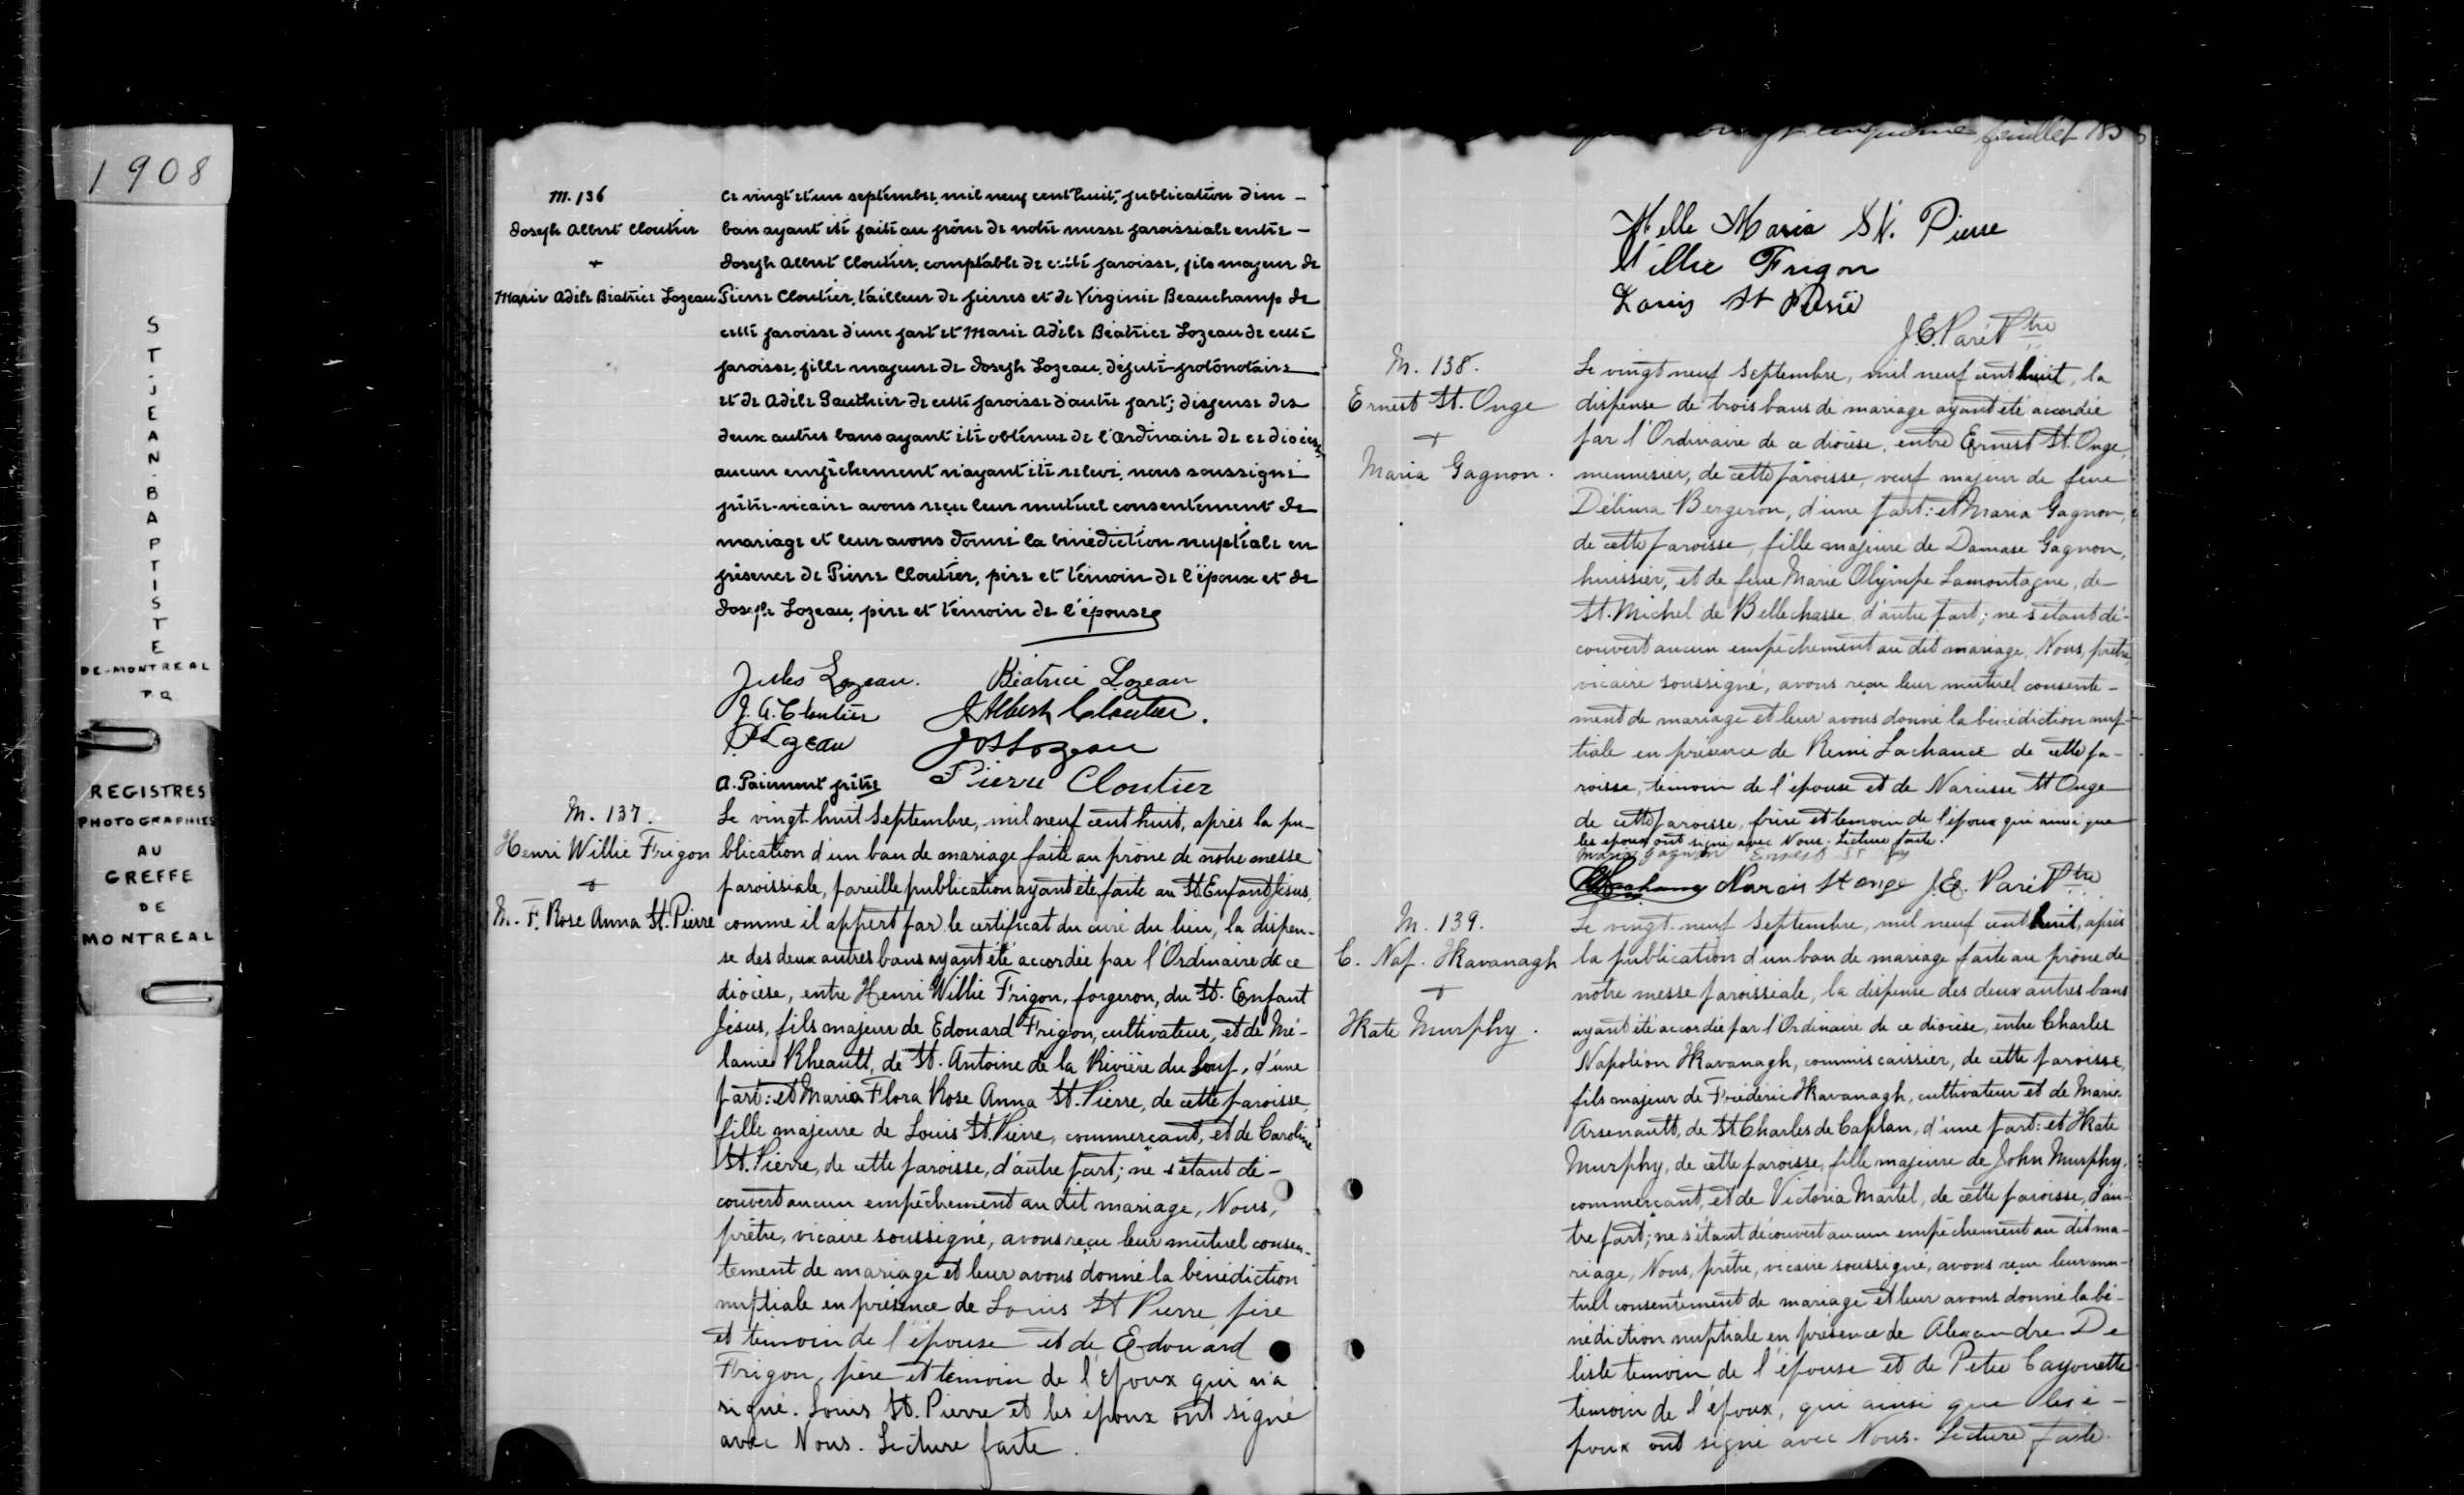 1908
ST-JEAN-BAPTISTE
DE-MONTREAL
P.Q
REGISTRES
PHOTOGRAPHIES
AU
GREFFE
DE
MONTREAL
M. 136
Joseph Albert Cloutier
+
Marie Adèle Béatrice Lozeau
Ce vingt et un septembre, mil neuf cent huit, publication d'un -
ban ayant été faite au prône de notre messe paroissiale entre -
Joseph Albert Cloutier, comptable de cette paroisse, fils majeur de
Pierre Cloutier, tailleur de pierres et de Virginie Beauchamp de
cette paroisse d'une part et Marie Adèle Béatrice Lozeau de cette
paroisse, fille majeure de Joseph Lozeau, député-protonotaire
et de Adèle Gauthier de cette paroisse d'autre part; dispense des
deux autres bans ayant été obtenue de l'Ordinaire de ce diocèse,
aucun empêchement n'ayant été relevé, nous soussigné
prêtre-vicaire avons reçu leur mutuel consentement de
mariage et leur avons donné la bénédiction nuptiale en
présence de Pierre Cloutier, père et témoin de l'époux et de
Joseph Lozeau, père et témoin de l'épouse
Jules Lozeau. Béatrice Lozeau
J. A. Cloutier J Albert Cloutier.
Lozeau Jos Lozeau
A. Paiement prêtre Pierre Cloutier
M. 137.
Henri Willie Frigon
+
M. F. Rose Anna St. Pierre
Le vingt-huit Septembre, mil neuf cent huit, après la pu-
blication d'un ban de mariage faite au prône de notre messe
paroissiale, pareille publication ayant été faite au St. Enfant Jésus,
comme il appert par le certificat du curé du lieu, la dispen-
se des deux autres bans ayant été accordée par l'Ordinaire de ce
diocèse, entre Henri Willie Frigon, forgeron, du St. Enfant
Jésus, fils majeur de Edouard Frigon, cultivateur, et de Mé-
lanie Rheault, de St. Antoine de la Rivière du Loup, d'une
part: et Maria Flora Rose Anna St. Pierre, de cette paroisse,
fille majeure de Louis St. Pierre, commerçant, et de Caroline
St. Pierre, de cette paroisse, d'autre part; ne s'étant dé-
couvert aucun empêchement au dit mariage, Nous,
prêtre, vicaire soussigné, avons reçu leur mutuel consen-
tement de mariage et leur avons donné la bénédiction
nuptiale en présence de Louis St Pierre, père
et témoin de l'épouse et de Edouard
Frigon, père et témoin de l'époux qui n'a
signé. Louis St. Pierre et les époux ont signé
avec Nous. Lecture faite.
feuillet 185
Melle Maria St. Pierre
Willie Frigon
Louis St Pierre
J. E. Paré Ptre
M. 138.
Ernest St. Onge
+
Maria Gagnon.
Le vingt neuf Septembre, mil neuf cent huit, la
dispense de trois bans de mariage ayant été accordée
par l'Ordinaire de ce diocèse, entre Ernest St. Onge,
menuisier, de cette paroisse, veuf majeur de feue
Délima Bergeron, d'une part: et Maria Gagnon,
de cette paroisse, fille majeure de Damase Gagnon,
huissier, et de feue Marie Olympe Lamontagne, de
St. Michel de Bellechasse, d'autre part; ne s'étant dé-
couvert aucun empêchement au dit mariage, Nous, prêtre,
vicaire soussigné, avons reçu leur mutuel consente-
ment de mariage et leur avons donné la bénédiction nup-
tiale en présence de Remi Lachance de cette pa-
roisse, témoin de l'épouse et de Narcisse St Onge
de cette paroisse, frère et témoin de l'époux qui ainsi que
les époux ont signé avec Nous. Lecture faite.
Maria Gagnon Ernest St
Lachance Narcis St onge J. E. Paré Ptre
M. 139.
C. Nap. Kavanagh
+
Kate Murphy.
Le vingt-neuf Septembre, mil neuf cent huit, après
la publication d'un ban de mariage faite au prône de
notre messe paroissiale, la dispense des deux autres bans
ayant été accordée par l'Ordinaire de ce diocèse, entre Charles
Napoléon Kavanagh, commis caissier, de cette paroisse,
fils majeur de Frédéric Kavanagh, cultivateur et de Marie
Arsenault, de St Charles de Caplan, d'une part: et Kate
Murphy, de cette paroisse, fille majeure de John Murphy,
commerçant, et de Victoria Martel, de cette paroisse, d'au-
tre part; ne s'étant découvert aucun empêchement au dit ma-
riage, Nous, prêtre, vicaire soussigné, avons reçu leur mu-
tuel consentement de mariage et leur avons donné la bé-
nédiction nuptiale en présence de Alexandre De
lisle témoin de l'épouse et de Peter Cayouette
témoin de l'époux, qui ainsi que les é-
poux ont signé avec Nous. Lecture faite.